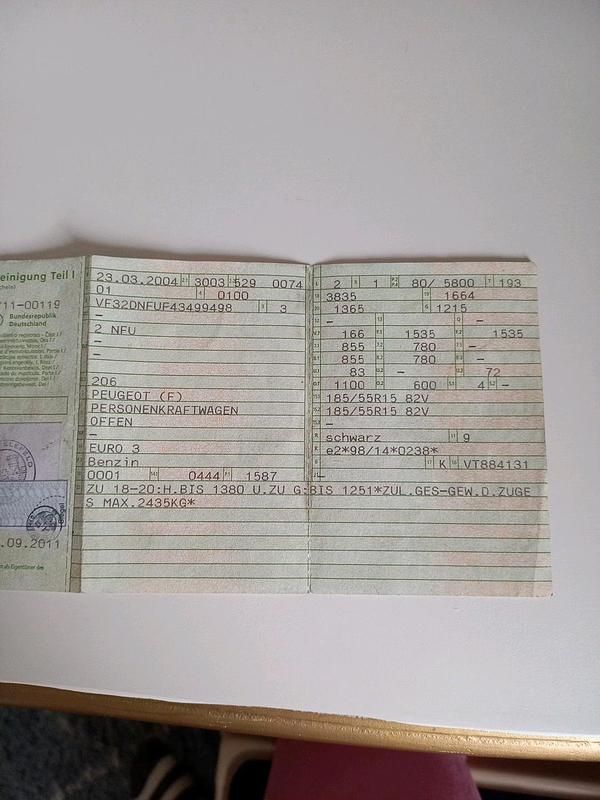 einigung Teil I
11-00119
Bundesrepublik
Deutschland
.09.2011
23.03.2004 3003 529 0074
01 0100
VF32DNFUF43499498 3
–
2 NEU
–
–
206
PEUGEOT (F)
PERSONENKRAFTWAGEN
OFFEN
–
EURO 3
Benzin
0001 0444 1587
ZU 18-20:H.BIS 1380 U.ZU G:BIS 1251*ZUL.GES-GEW.D.ZUGE
S MAX.2435KG*
2 1 80/ 5800 193
3835 1664
1365 1215
– –
166 1535 1535
855 780 –
855 780 –
83 – 72
1100 600 4 –
185/55R15 82V
185/55R15 82V
–
schwarz 9
e2*98/14*0238*
K VT884131
–